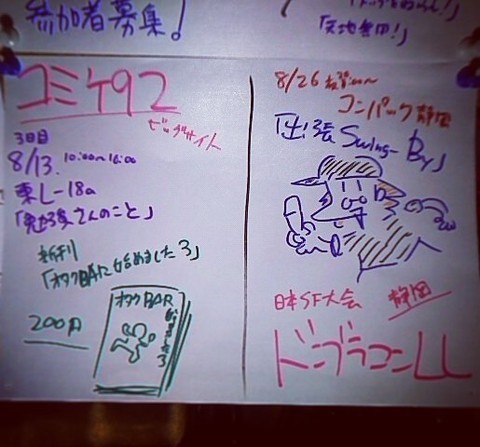 参加者募集!
「天地無用!」
コミケ92
ビッグサイト
3日目
8/13. 10:00〜16:00
東L-18a
「勉強さんのこと」
新刊
「オタクBAR始めました3」
200円
オタクBAR
始めました3
8/26
コンパック静岡
「出張Swing-By」
日本SF大会 静岡
ドンブラコンLL